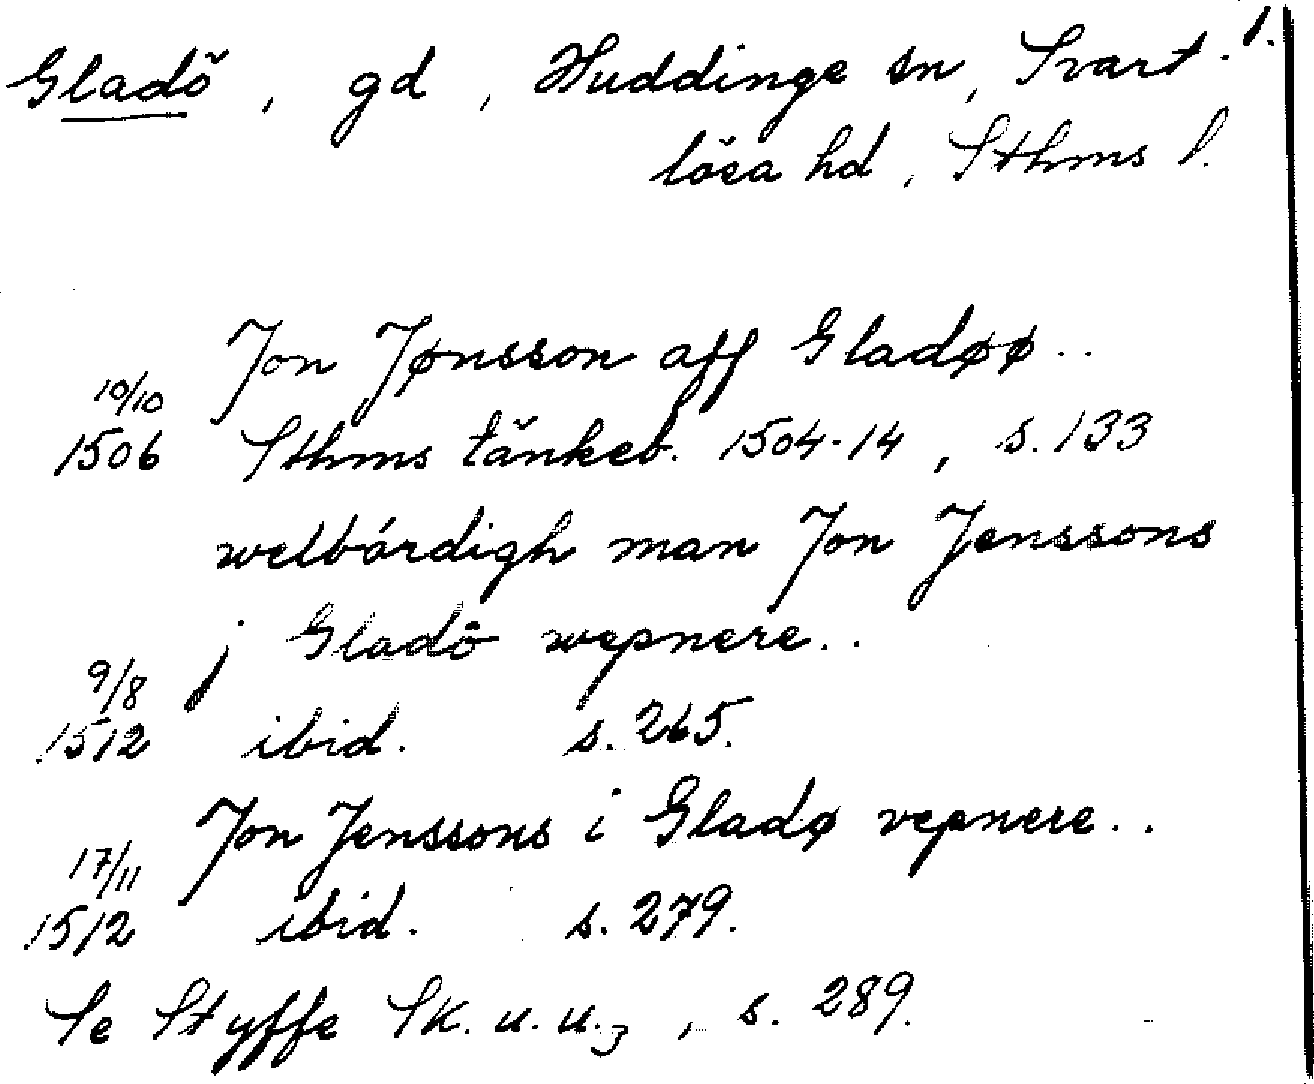 Gladö, gd, Huddinge sn, Svart- 1.
lösa hd, Sthms l.
Jon Jønsson aff Gladøø..
10/10
1506 Sthms tänkeb. 1504-14, s. 133
welbårdigh man Jon Jenssons
j Gladö wepnere..
9/8
1512 ibid. s. 265.
Jon Jenssons i Gladø vepnere..
17/11
1512 ibid. s. 279.
Se Styffe Sk. u. u.3, s. 289.